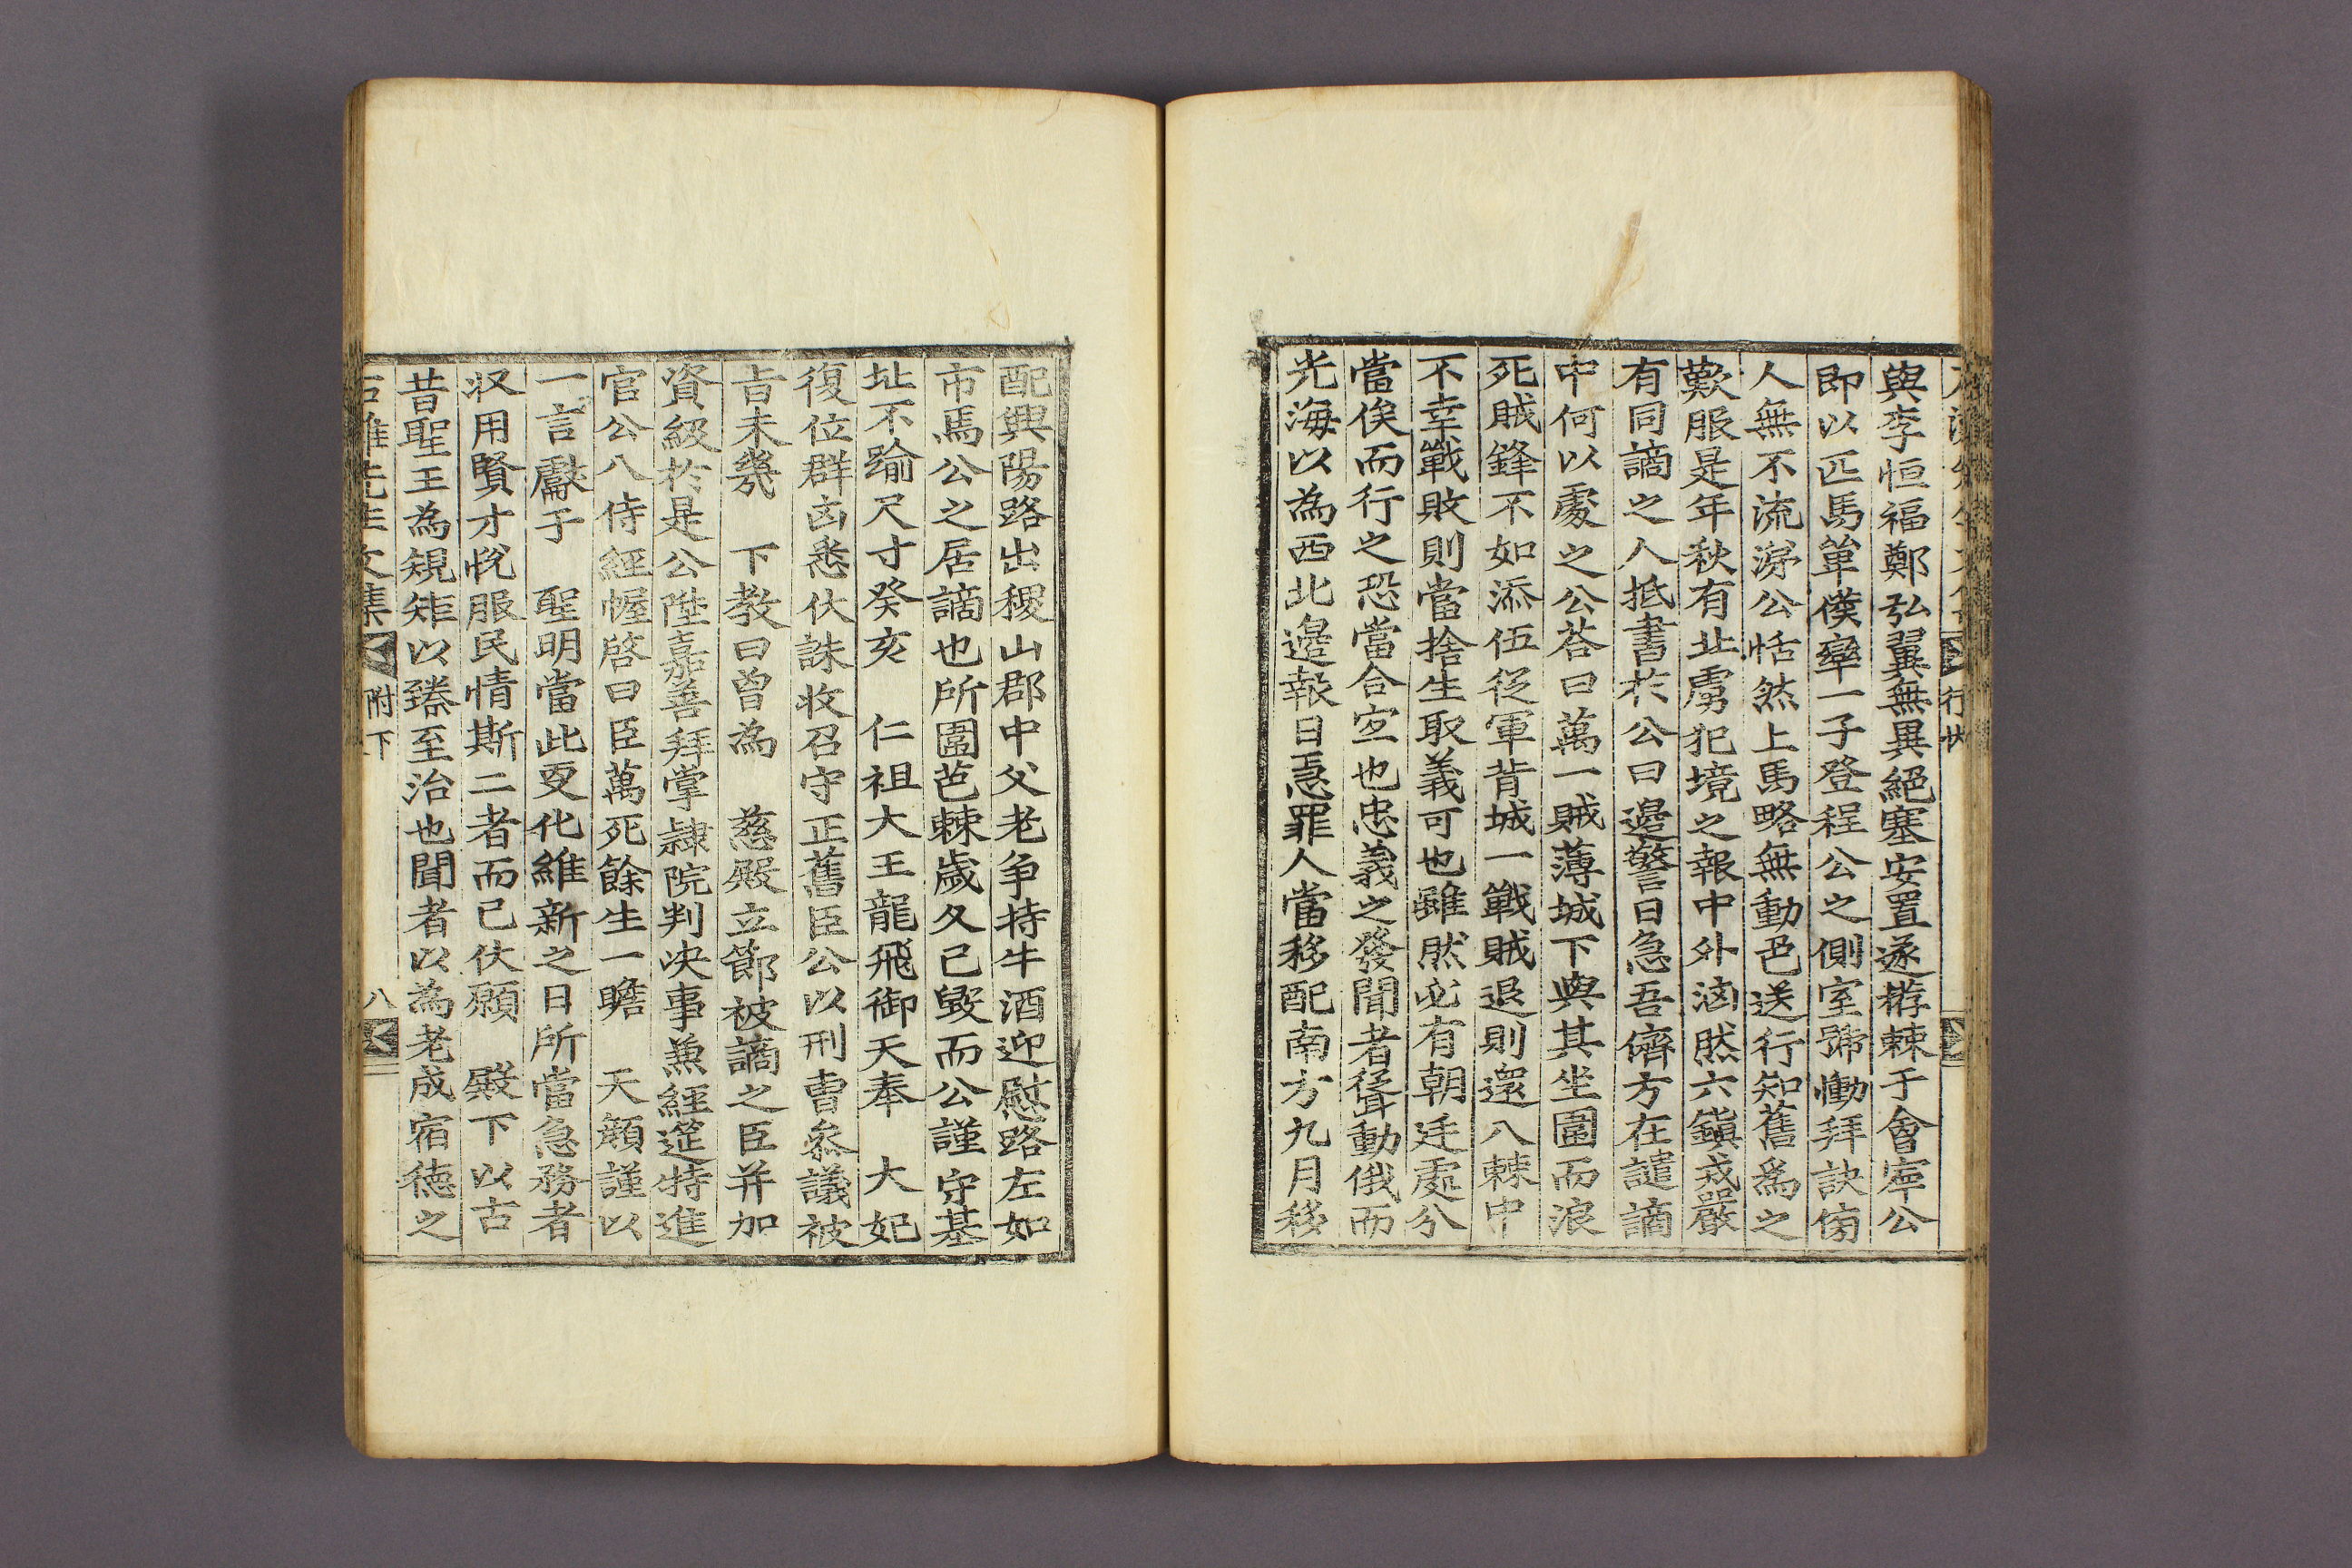 行狀
與李恒福鄭弘翼無異絕塞安置遂栫棘于會寧公
即以匹馬單僕率一子登程公之側室號慟拜訣傍
人無不流涕公恬然上馬略無動色送行知舊爲之
歎服是年秋有北虜犯境之報中外洶然六鎭戒嚴
有同謫之人抵書於公曰邊警日急吾儕方在譴謫
中何以處之公荅曰萬一賊薄城下與其坐圍而浪
死賊鋒不如添伍從軍背城一戰賊退則還入棘中
不幸戰敗則當捨生取義可也雖然必有朝廷處分
當俟而行之恐當合宜也忠義之發聞者聳動俄而
光海以為西北邊報日急罪人當移配南方九月移
配興陽路出稷山郡中父老争持牛酒迎慰路左如
市馬公之居謫也所圍芭棘歲久已毀而公謹守基
址不踰尺寸癸亥　仁祖大王龍飛御天奉　大妃
復位群凶悉伏誅收召守正舊臣公以刑曺叅議被
㫖未幾　下教曰曾為　慈殿立節被謫之臣并加
資級於是公陞嘉善拜掌隷院判决事兼經筵特進
官公入侍經幄啓曰臣萬死餘生一瞻　天顏謹以
一言獻于　聖明當此更化維新之日所當急務者
収用賢才悅服民情斯二者而已伏願　殿下以古
昔聖王為規矩以臻至治也聞者以為老成宿德之
先生文集　附下　八